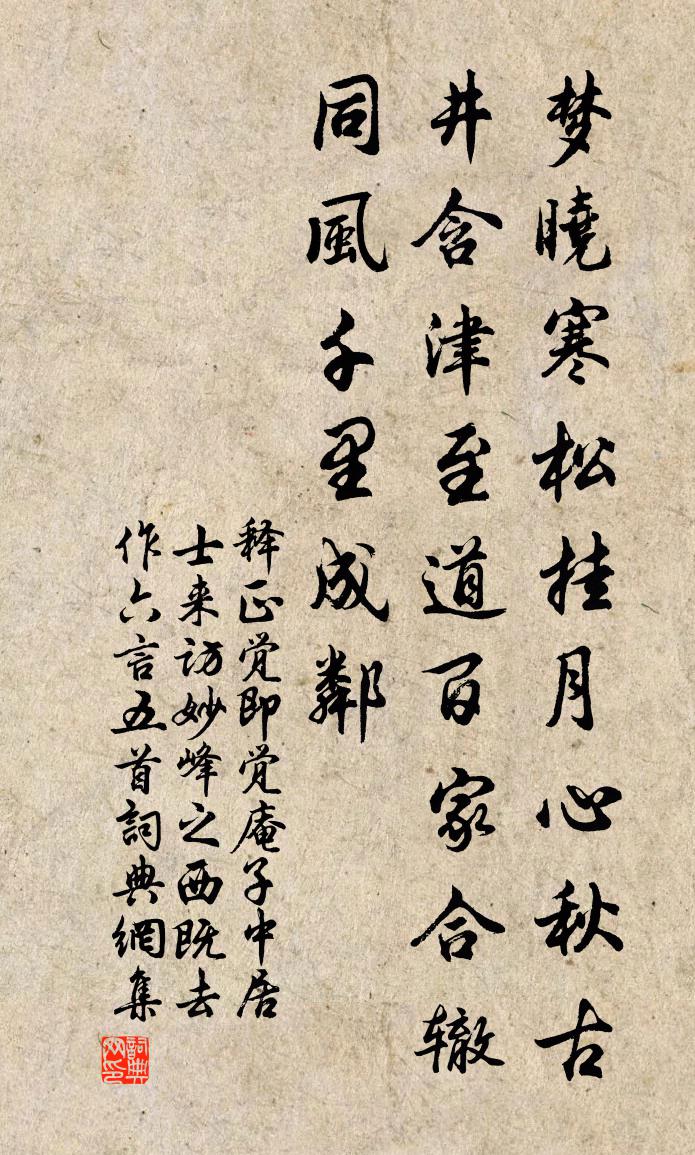 梦曉寒松挂月心秋古
井含津至道百家合辙
同風千里成鄰
释正觉即觉庵子中居
士来访妙峰之西既去
作六言五首詞典網集
詞典网印